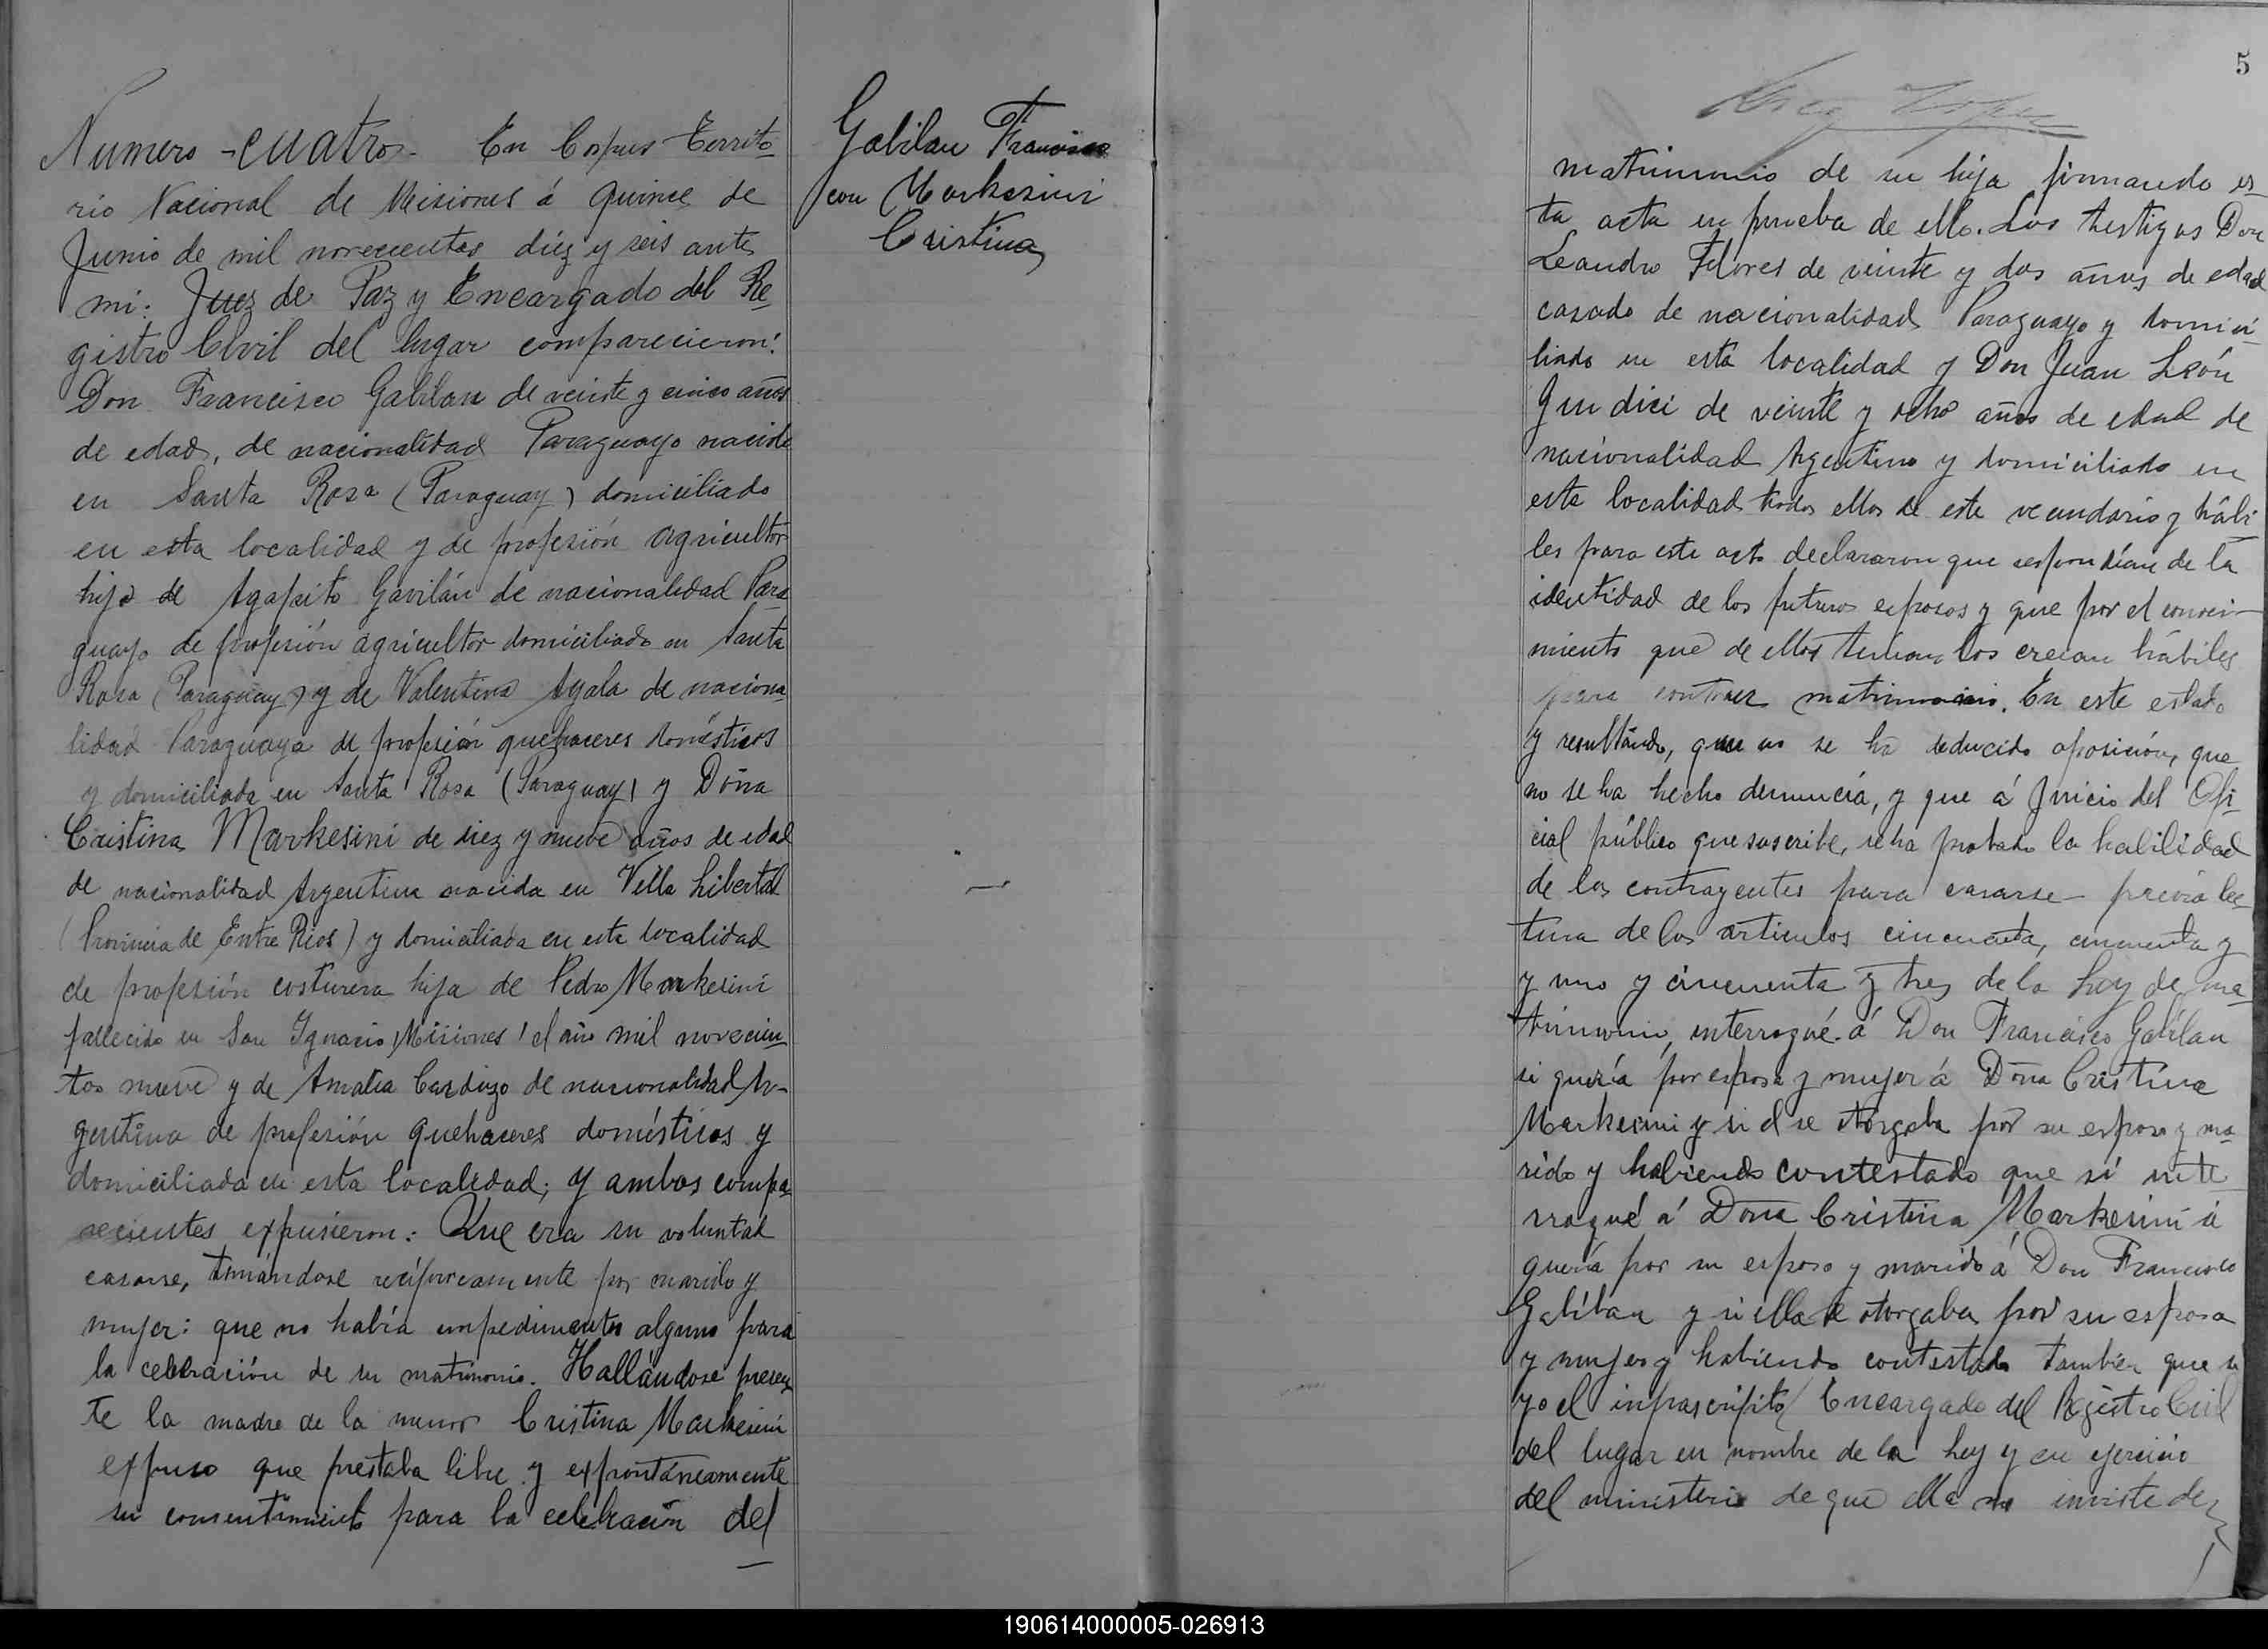 Numero -cuatro- En Corpus Territo
rio Nacional de Misiones á quince de
Junio de mil novecientos diéz y seis ante
mi: Juez de Paz y Encargado del Re
gistro Civil del lugar comparecieron:
Don Francisco Gabilan de veinte y cinco años
de edad, de nacionalidad Paraguayo nacido
en Santa Rosa (Paraguay) domiciliado
en esta localidad y de profesión agricultor
hijo de Agapito Gavilán de nacionalidad Para
guayo de profesión agricultor domiciliado en Santa
Rosa (Paraguay) y de Valentina Ayala de naciona
lidad Paraguaya de profesión quehaceres domésticos
y domiciliada en Santa Rosa (Paraguay) y Doña
Cristina Markesini de diez y nueve años de edad
de nacionalidad Argentina nacida en Villa Libertad
(Provincia de Entre Rios) y domiciliada en esta localidad
de profesión costurera hija de Pedro Markesini
fallecido en San Ignacio (Misiones) el año mil novecien
tos nueve y de Amalia Cardozo de nacionalidad Ar-
gentina de profesión quehaceres domésticos y
domiciliada en esta localidad; y ambos compa
recientes expusieron: Que era su voluntad
casarse, tomándose recíprocamente por marido y
mujer: que no había impedimento alguno para
la celebración de su matrimonio. Hallándose presen
te la madre de la menor Cristina Markesini
expuso que prestaba libre y expontáneamente
su consentimiento para la celebración del
Gabilan Francisco
con Markesini
Cristina
5
matrimonio de su hija firmando es
ta acta en prueba de ello. Los testigos Don
Leandro Flores de veinte y dos años de edad
casado de nacionalidad Paraguayo y domici
liado en esta localidad y Don Juan León
de veinte y ocho años de edad de
nacionalidad Argentino y domiciliado en
esta localidad todos ellos de este vecindario y hábi
les para este acto declararon que respondían de la
identidad de los futuros esposos y que por el conoci-
miento que de ellos tenian los creian hábiles
para contraer matrimonio. En este estado
y resultando, que no se ha deducido oposición, que
no se ha hecho denuncia, y que á Juicio del Ofi-
cial público que suscribe, se ha probado la habilidad
de los contrayentes para casarse- previa lec
tura de los articulos cincuenta, cincuenta y
y uno y cincuenta y tres de la Ley de ma
trimonio, interrogué á Don Francisco Gabilan
si quería por esposa y mujer á Doña Cristina
Markesini y si el se otorgaba por su esposo y ma
rido y habiendo contestado que sí inte
rrogué á Doña Cristina Markesini si
queria por su esposo y marido á Don Francisco
Gabilan y si ella se otorgaba por su esposa
y mujer y habiendo contestado tambien que si
yo el infrascripto Encargado del Registro Civil
del lugar en nombre de la Ley y en ejercicio
del ministerio de que ella me inviste de
190614000005-026913